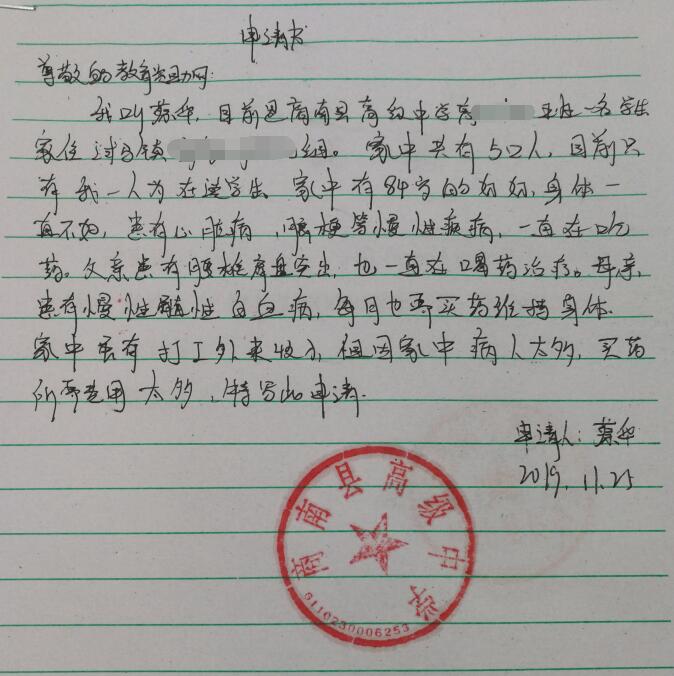 申请书
尊敬的教育资助网:
我叫蔡华,目前是商南县高级中学高 班一名学生
家住过风楼镇 组。家中共有5口人,目前只
有我一人为在读学生 家中有84岁的奶奶,身体一
直不好,患有心脏病,脑梗等慢性疾病,一直在吃
药。父亲患有腰椎肩盘突出,也一直在喝药治疗。母亲,
患有慢性髓性白血病,每月也要买药维持身体.
家中虽有打工外来收入,但因家中病人太多,买药
所需费用太多,特写此申请.
申请人:蔡华
2019.11.25
商南县高级中学
6110230006253